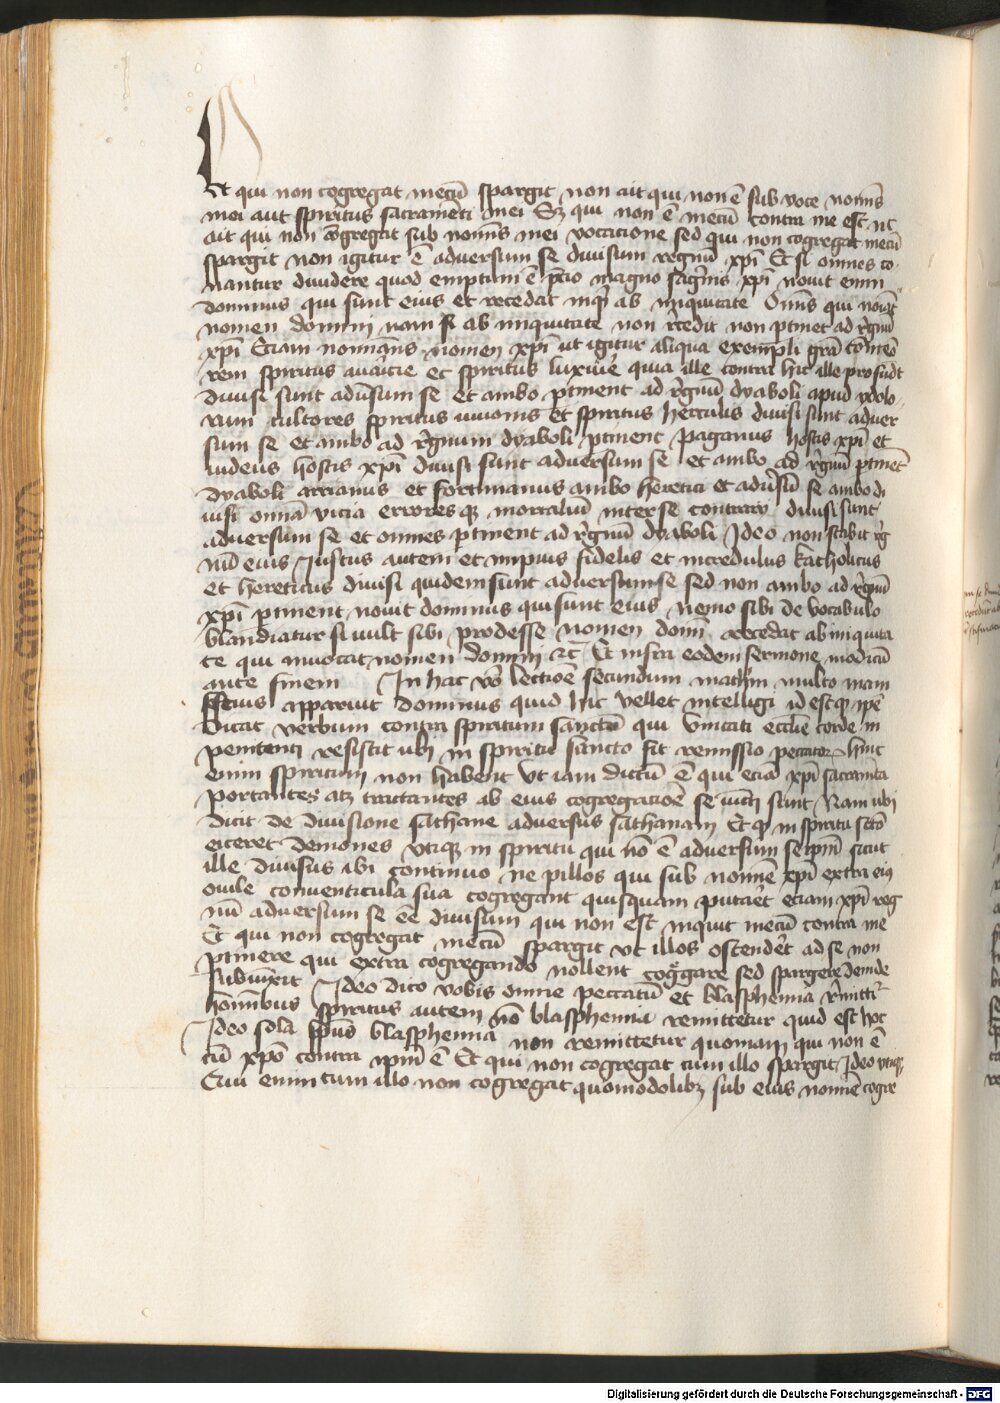 Et qui non cogregat mecū spargit non ait qui non ē sub voce noīis
mei aut spiritus sacramēti mei Sꝫ qui non ē mecū contra me est nc̄
ait qui non cōgregat sub noīis mei vocacione sed qui non cogregat mecū
spargit non igitur ē adversum se divisum regnū xp̄i Et si omnes co
nantur dividere quod emptum ē p̄cio magno sag̅nis xp̄i novit enim
dominus qui sunt eius et recedat inq̄t ab iniquitate Om̄s qui novit
nomen domini nam si ab iniquitate non r̄cedit non ꝑtinet ad r̄gnū
xp̄i Eciam nominans nomen xp̄i ut igitur aliqua exempli grā cōmēo
rem spiritus avaricie et spiritus luxurie quia ille contra hit ille profūdt
divisi sunt adūsum se et ambo ꝑtinent ad r̄gnū dyaboli apud ydolo
rum cultores spiritus iunonis et spiritus herculis divisi sunt adver
sum se et ambo ad r̄gnum dyaboli ꝑtinent paganus hostis xp̄i et
iudeus hostis xp̄i divisi sunt adversum se et ambo ad r̄gnū ꝑtinēt
dyaboli arrianus et fortinianus ambo heretici et adūsū se ambo di
uisi omnā vicia errores qꝫ mortaliū inter se contrary divisi sunt
adversum se et omnes ꝑtinent ad r̄gnū dyaboli Ideo non stabit r̄g
nū eius Iustus autem et impius fidelis et incredulus katholicus
et hereticus divisi quidem sunt adversum se sed non ambo ad r̄gnū
xp̄i ꝑtinent novit dominus qui sunt eius nemo sibi de vocabulo
blandiatur si vult sibi prodesse nomen domī recedat ab iniquita
te qui invocat nomen domini ⁊c̄ Et infra eodem sermone modicū
ante finem In hac v̄o lectioē secundum math̄m multo mani
festius apparuit dominus quid hic vellet intelligi id est qꝫ ip̄e
dicat verbum contra spiritum sanctū qui vnitati eccl̄ie corde in
penitenti resistit ubi in spiritu sancto fit remissio peccatoꝝ hunc
enim spiritum non habent ut iam dictū ē qui eciā xp̄i sacramēta
portantes atꝫ tractantes ab eius cogregacioē seiūcti sunt Nam ubi
dicit de divisione sathane adversus sathanam Et qꝫ in spiritu sc̄to
eiceret demones vtiqꝫ in spiritu qui nō ē adversum seip̄m sicut
ille divisus ibi continuo ne p illos qui sub nomīe xp̄i extra eiꝰ
ovile conventicula sua cogregant quisquam putaēt eciam xp̄i reg
nū adversum se eē divisum qui non est inquit mecū contra me
Et qui non cogregat mecū spargit vt illos ostendēt ad se non
ꝑtinere qui extra cogregando nollent cogg̅are sed spargere deinde
subiūxit Ideo dico vobis omne peccatū et blasphemia r̄mittit̄
hominibus spiritus autem nō blasphemia remittetur quid est hoc
Ideo sola sp̄us blasphemia non remittetur quoniam qui non ē
cū xp̄o contra ip̄m ē Et qui non cogregat cum illo spargit Ideo vtiqꝫ
enim cum illo non cogregat quomodolibꝫ sub eius nomīe cogre
Digitalisierung gefördert durch die Deutsche Forschungsgemeinschaft - DFG